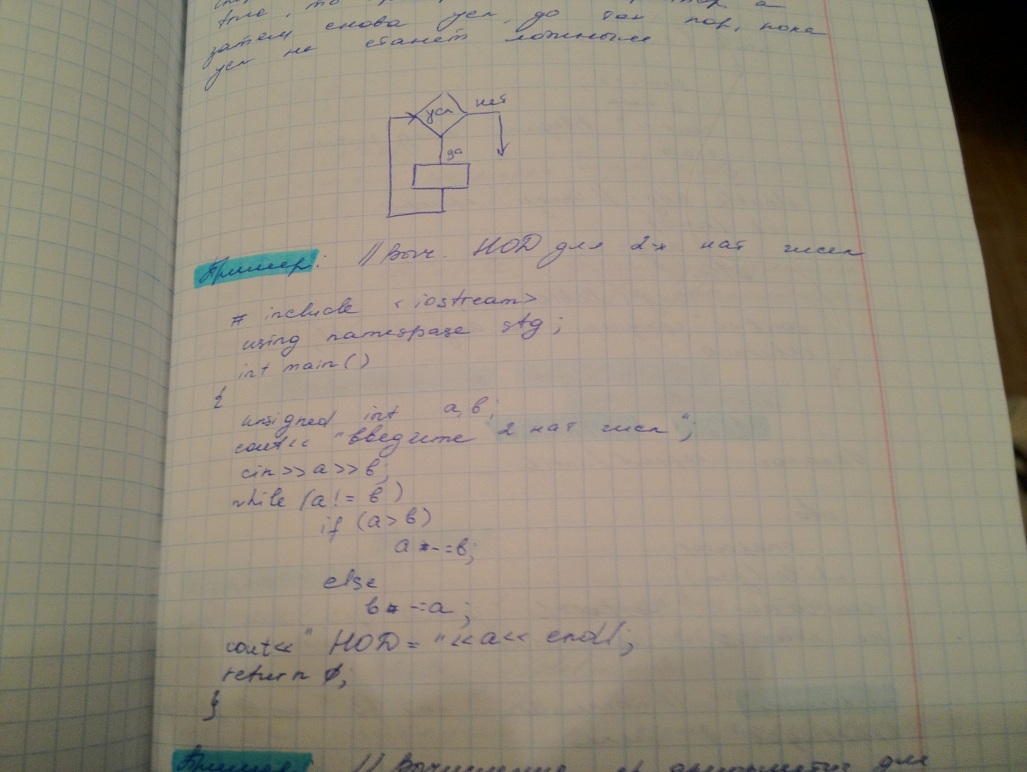 true, то
затем снова усл, до тех пор, пока
усл не станет ложным
усл
нет
да
Пример: // Выч. НОД для 2-х нат чисел
# include <iostream>
using namespace std;
int main()
{
unsigned int a,b;
cout<< "введите 2 нат числ";
cin>>a>>b;
while (a!= b)
if (a>b)
a-=b;
else
b-=a;
cout<<" НОД= "<<a<< endl;
return 0;
}
Пример // Вычисление для